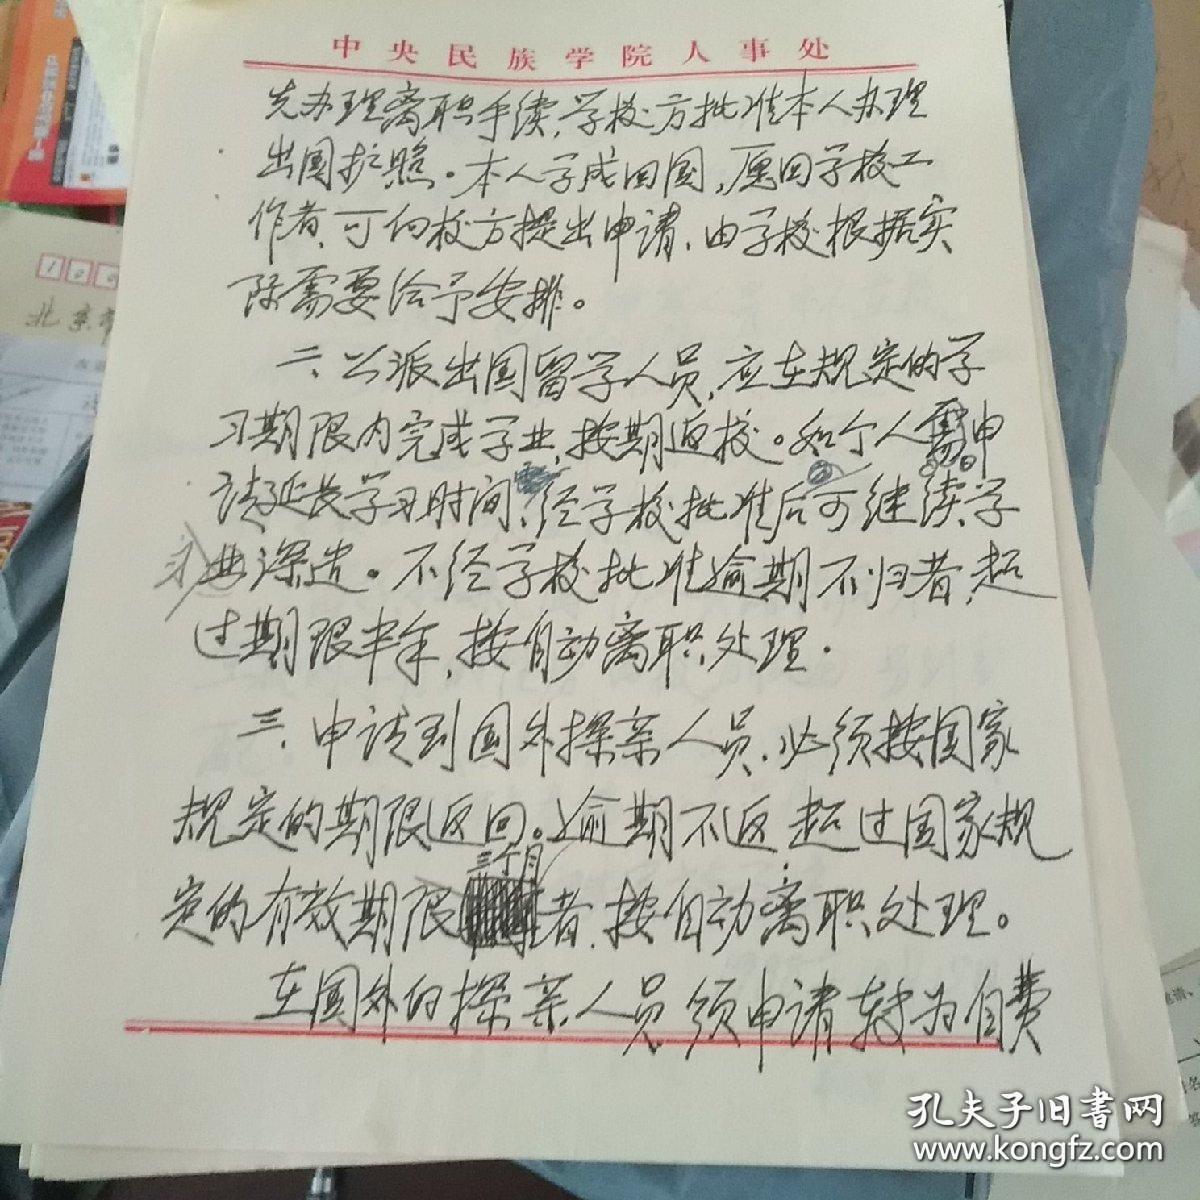 中央民族学院人事处
先办理离职手续,学校方批准本人办理
出国护照。本人学成回国,愿回学校工
作者,可向校方提出申请,由学校根据实
际需要给予安排。
二、公派出国留学人员,应在规定的学
习期限内完成学业,按期返校。如个人需申
请延长学习时间,经学校批准后可继续学
习深造。不经学校批准逾期不归者,超
过期限半年,按自动离职处理.
三、申请到国外探亲人员,必须按国家
规定的期限返回。逾期不返超过国家规
三个月
定的有效期限者,按自动离职处理。
在国外的探亲人员须申请转为自费
北京市
孔夫子旧书网
www.kongfz.com